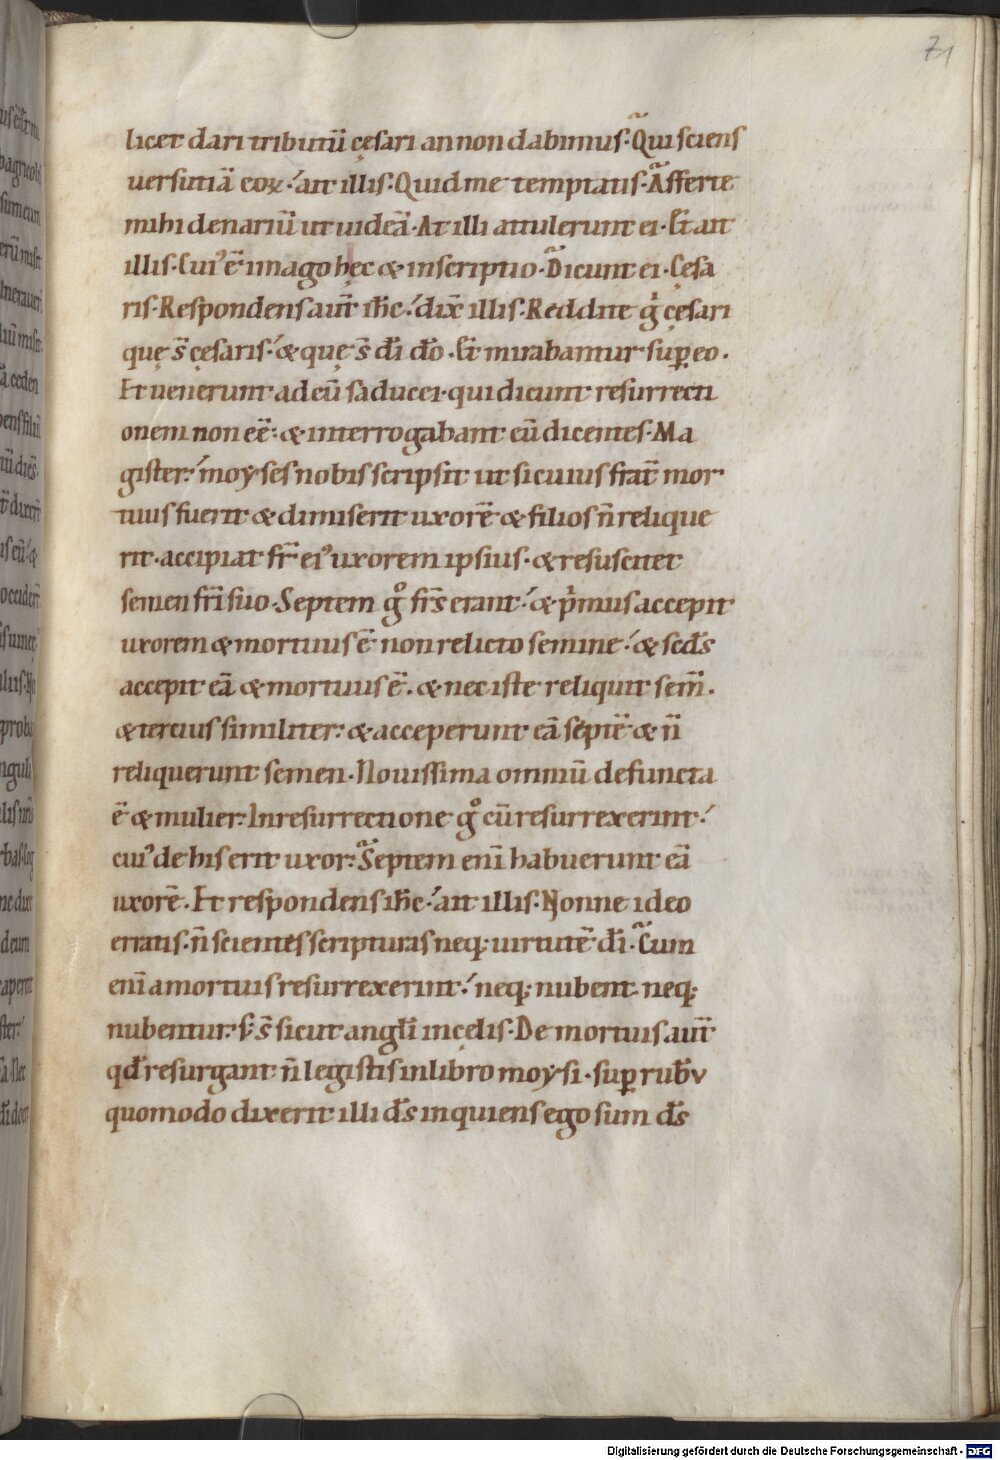 71
licet dari tributū cęsari an non dabimus. Qui sciens
uersutiā eoꝝ. ait illis. Quid me temptatis. Afferte
mihi denariū ut uideā. At illi attulerunt ei. Et ait
illis. Cui᾽ ē imago hęc & inscriptio. Dicunt ei. Cęsa
ris. Respondens aut̄ ih̄c. dix̄ illis. Reddite gͥ cęsari
quę s̄ cęsaris. & quę s̄ dī dō. Et mirabantur suꝑ eo.
Et uenerunt ad eū saducei. qui dicunt resurrecti
onem non eē. & interrogabant eū dicentes. Ma
gister. moyses nobis scripsit ut si cuius frat̄ mor
tuus fuerit & dimiserit uxorē & filios n̄ relique
rit. accipiat fr̄ ei᾽ uxorem ipsius. & resuscitet
semen fr̄i suo. Septem gͦ fr̄s erant. & pͥmus accepit
uxorem & mortuus ē non relicto semine. & sc̄ds
accepit eā & mortuus ē. & nec iste reliquit sem̄.
& tercius similiter. & acceperunt eā septē & n̄
reliquerunt semen. Nouissima omniū defuncta
ē & mulier. In resurrectione gͦ cū resurrexerint.
cui᾽ de his erit uxor. Septem enī habuerunt eā
uxorē. Et respondens ih̄c. ait illis. Nonne ideo
erratis. n̄ scientes scripturas neq; uirtutē dī. Cum
enī a mortuis resurrexerint. neq; nubent. neq;
nubentur. s; s̄ sicut angl̄i in cęlis. De mortuis aut̄
qd̄ resurgant n̄ legistis in libro moysi. suꝑ rub̄v
quomodo dixerit illi d̄s inquiens ego sum d̄s
Digitalisierung gefördert durch die Deutsche Forschungsgemeinschaft - DFG